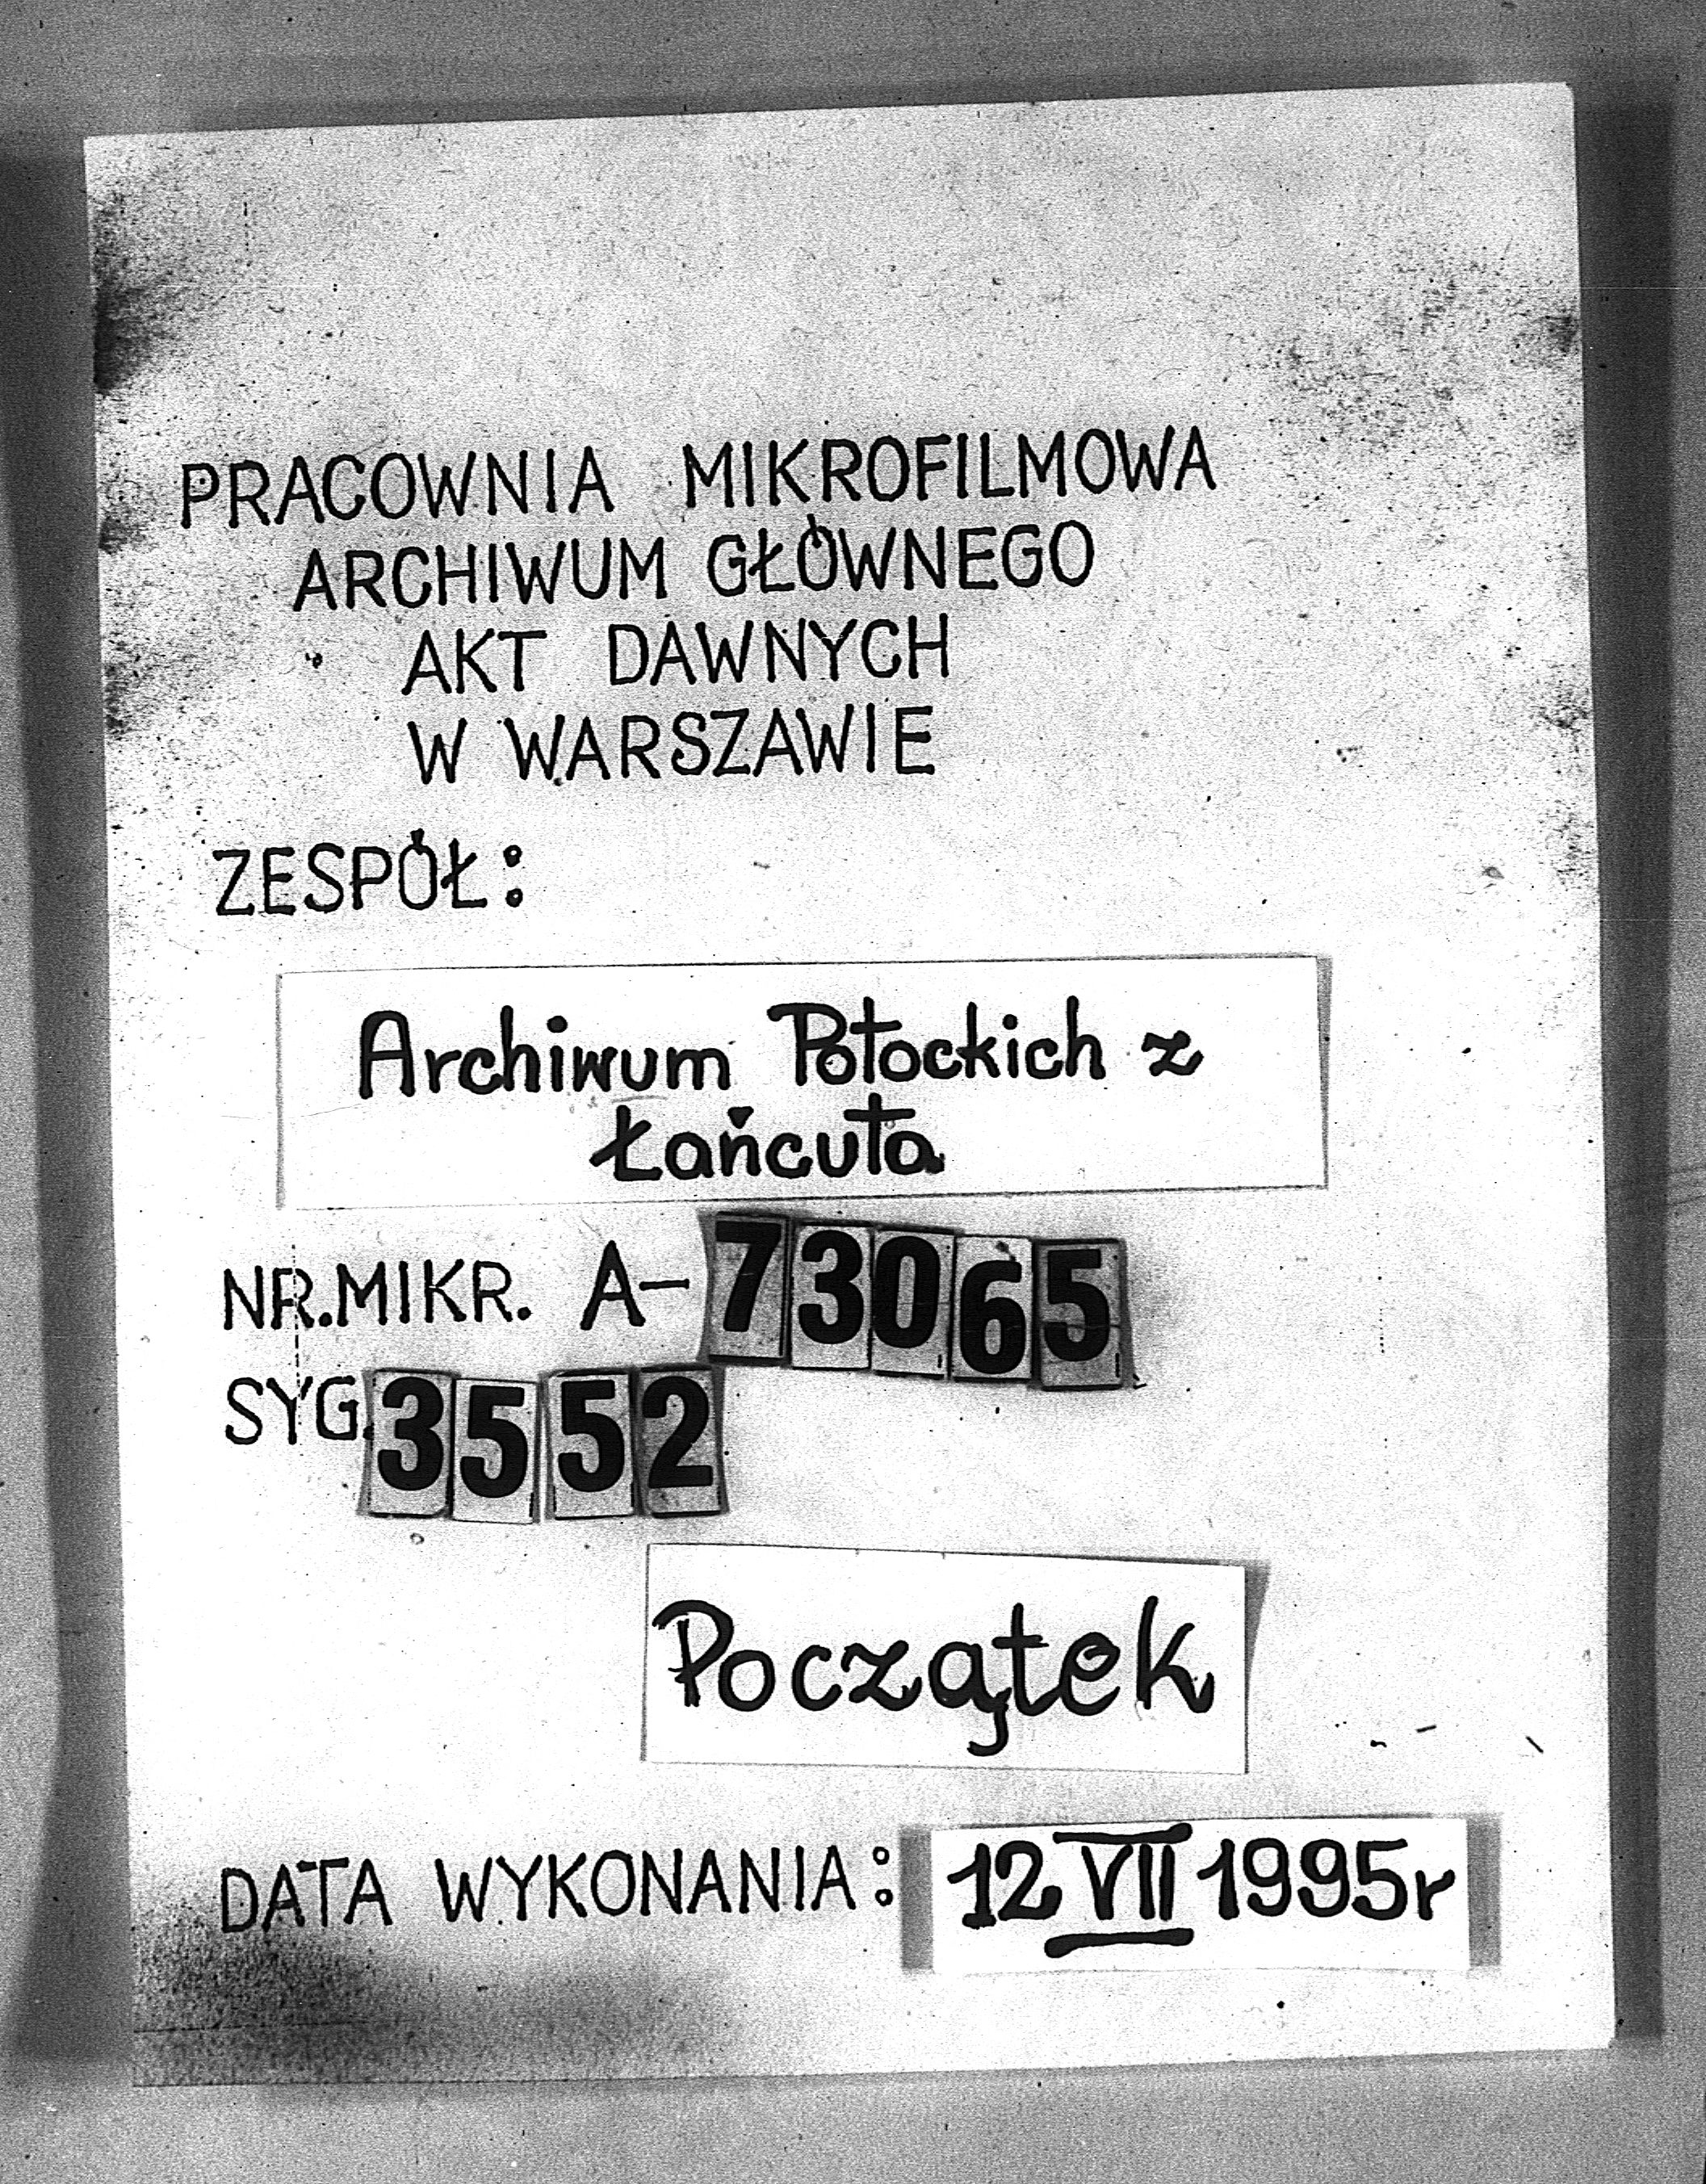 PRACOWNIA MIKROFILMOWA
ARCHIWUM GŁÓWNEGO
AKT DAWNYCH
W WARSZAWIE
ZESPÓŁ:
Archiwum Potockich z
Łańcuta
NR.MIKR. A-73065
SYG.3552
Początek
DATA WYKONANIA: 12 VII 1995r